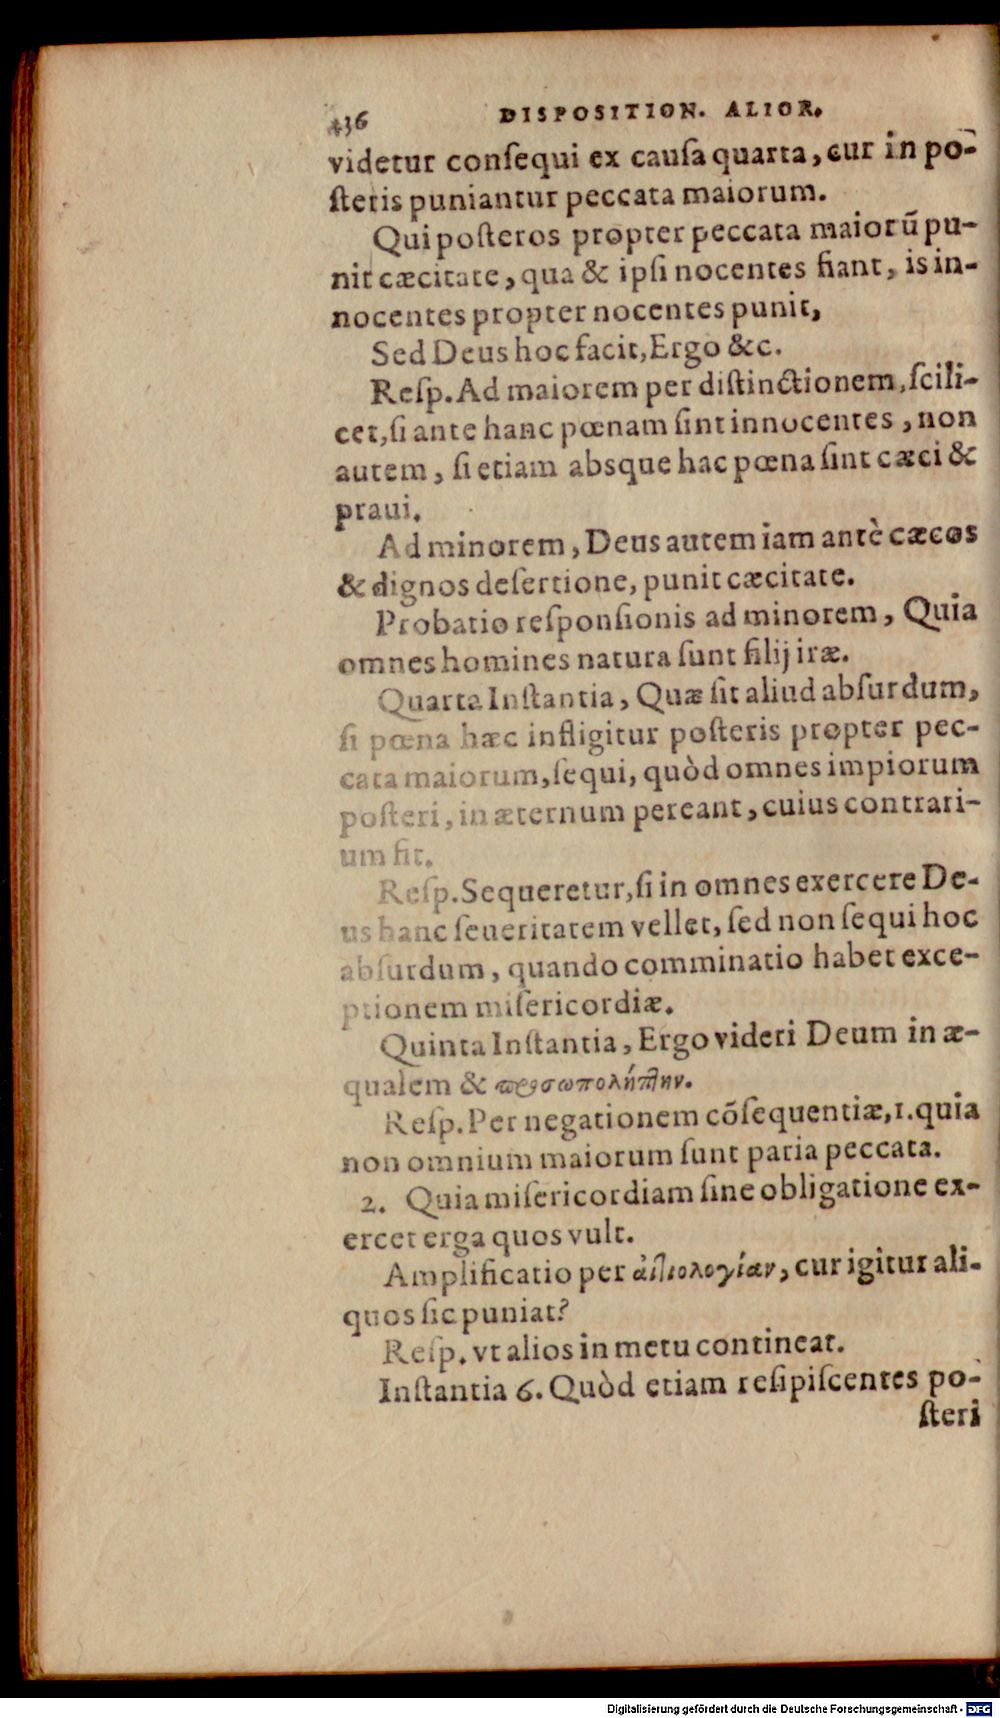 436 DISPOSITION. ALIOR.
videtur conſequi ex cauſa quarta, cur in po-
ſteris puniantur peccata maiorum.
Qui poſteros propter peccata maiorũ pu-
nit cæcitate, qua & ipſi nocentes fiant, is in-
nocentes propter nocentes punit,
Sed Deus hoc facit, Ergo &c.
Reſp. Ad maiorem per diſtinctionem, ſcili-
cet, ſi ante hanc pœnam ſint innocentes, non
autem, ſi etiam absque hac pœna ſint cæci &
praui.
Ad minorem, Deus autem iam antè cæcos
& dignos deſertione, punit cæcitate.
Probatio reſponſionis ad minorem, Quia
omnes homines natura ſunt filij iræ.
Quarta Inſtantia, Quæ ſit aliud abſurdum,
ſi pœna hæc infligitur poſteris propter pec-
cata maiorum, ſequi, quòd omnes impiorum
poſteri, in æternum pereant, cuius contrari-
um fit.
Reſp. Sequeretur, ſi in omnes exercere De-
us hanc ſeueritatem vellet, ſed non ſequi hoc
abſurdum, quando comminatio habet exce-
ptionem miſericordiæ.
Quinta Inſtantia, Ergo videri Deum inæ-
qualem & προσωπολήπτην.
Reſp. Per negationem cõſequentiæ, 1. quia
non omnium maiorum ſunt paria peccata.
2. Quia miſericordiam ſine obligatione ex-
ercet erga quos vult.
Amplificatio per ἀιτιολογίαν, cur igitur ali-
quos ſic puniat?
Reſp. vt alios in metu contineat.
Inſtantia 6. Quòd etiam reſipiſcentes po-
ſteri
Digitalisierung gefördert durch die Deutsche Forschungsgemeinschaft - DFG